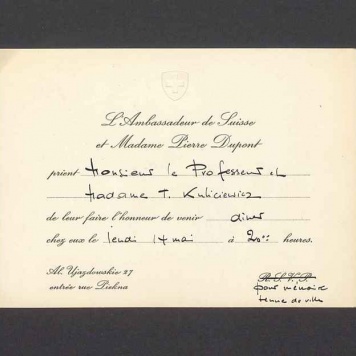 L'Ambassadeur de Suisse
et Madame Pierre Dupont
prient Monsieur le Professeur et
Madame T. Kulisiewicz
de leur faire l'honneur de venir dîner
chez eux le Jeudi 14 mai à 20°° heures.
Al. Ujazdowskie 27
entrée rue Piekna
R.S.V.P.
pour mémoire
tenue de ville